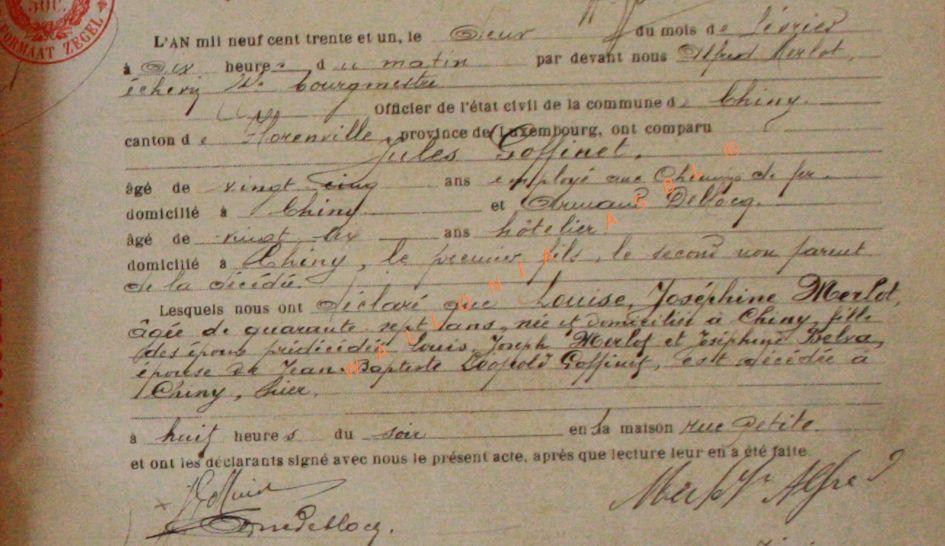 50C.
FORMAAT ZEGEL
L'AN mil neuf cent trente et un, le deux du mois de Février
à dix heures du matin par devant nous Alfred Merlot,
échevin bourgmestre
Officier de l'état civil de la commune de Chiny.
canton de Florenville, province de Luxembourg, ont comparu
Jules Goffinet.
âgé de vingt cinq ans employé aux Chemins de fer
domicilié à Chiny et Armand Deblocq.
âgé de vingt six ans hôtelier
domicilié à Chiny, le premier fils, le second non parent
de la décédée.
Lesquels nous ont déclaré que Louise, Joséphine Merlot,
âgée de quarante sept ans, née et domiciliée à Chiny, fille
des époux prédécédés Louis Joseph Merlot et Joséphine Belva,
épouse de Jean Baptiste Léopold Goffinet, est décédée à
Chiny, hier.
à huit heures du soir en la maison rue Petite.
et ont les déclarants signé avec nous le présent acte, après que lecture leur en a été faite.
Goffinet Merlot Alfred
Deblocq.